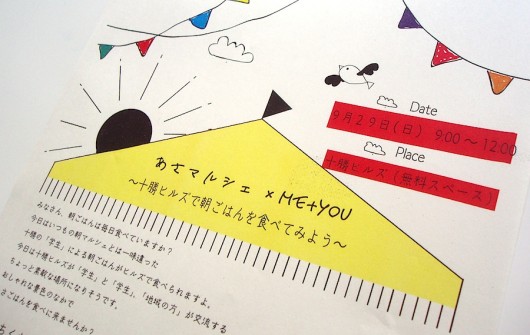 Date
9月29日(日) 9:00～12:00
Place
十勝ヒルズ(無料スペース)
あさマルシェ × ME+YOU
～十勝ヒルズで朝ごはんを食べてみよう～
みなさん、朝ごはんは毎日食べていますか？
今日はいつもの朝マルシェとは一味違った
十勝の「学生」による朝ごはんがヒルズで食べられますよ。
今日は十勝ヒルズが「学生」と「学生」、「地域の方」が交流する
ちょっと素敵な場所になりそうです。
おしゃれな景色のなかで
さごはんを食べに来ませんか？